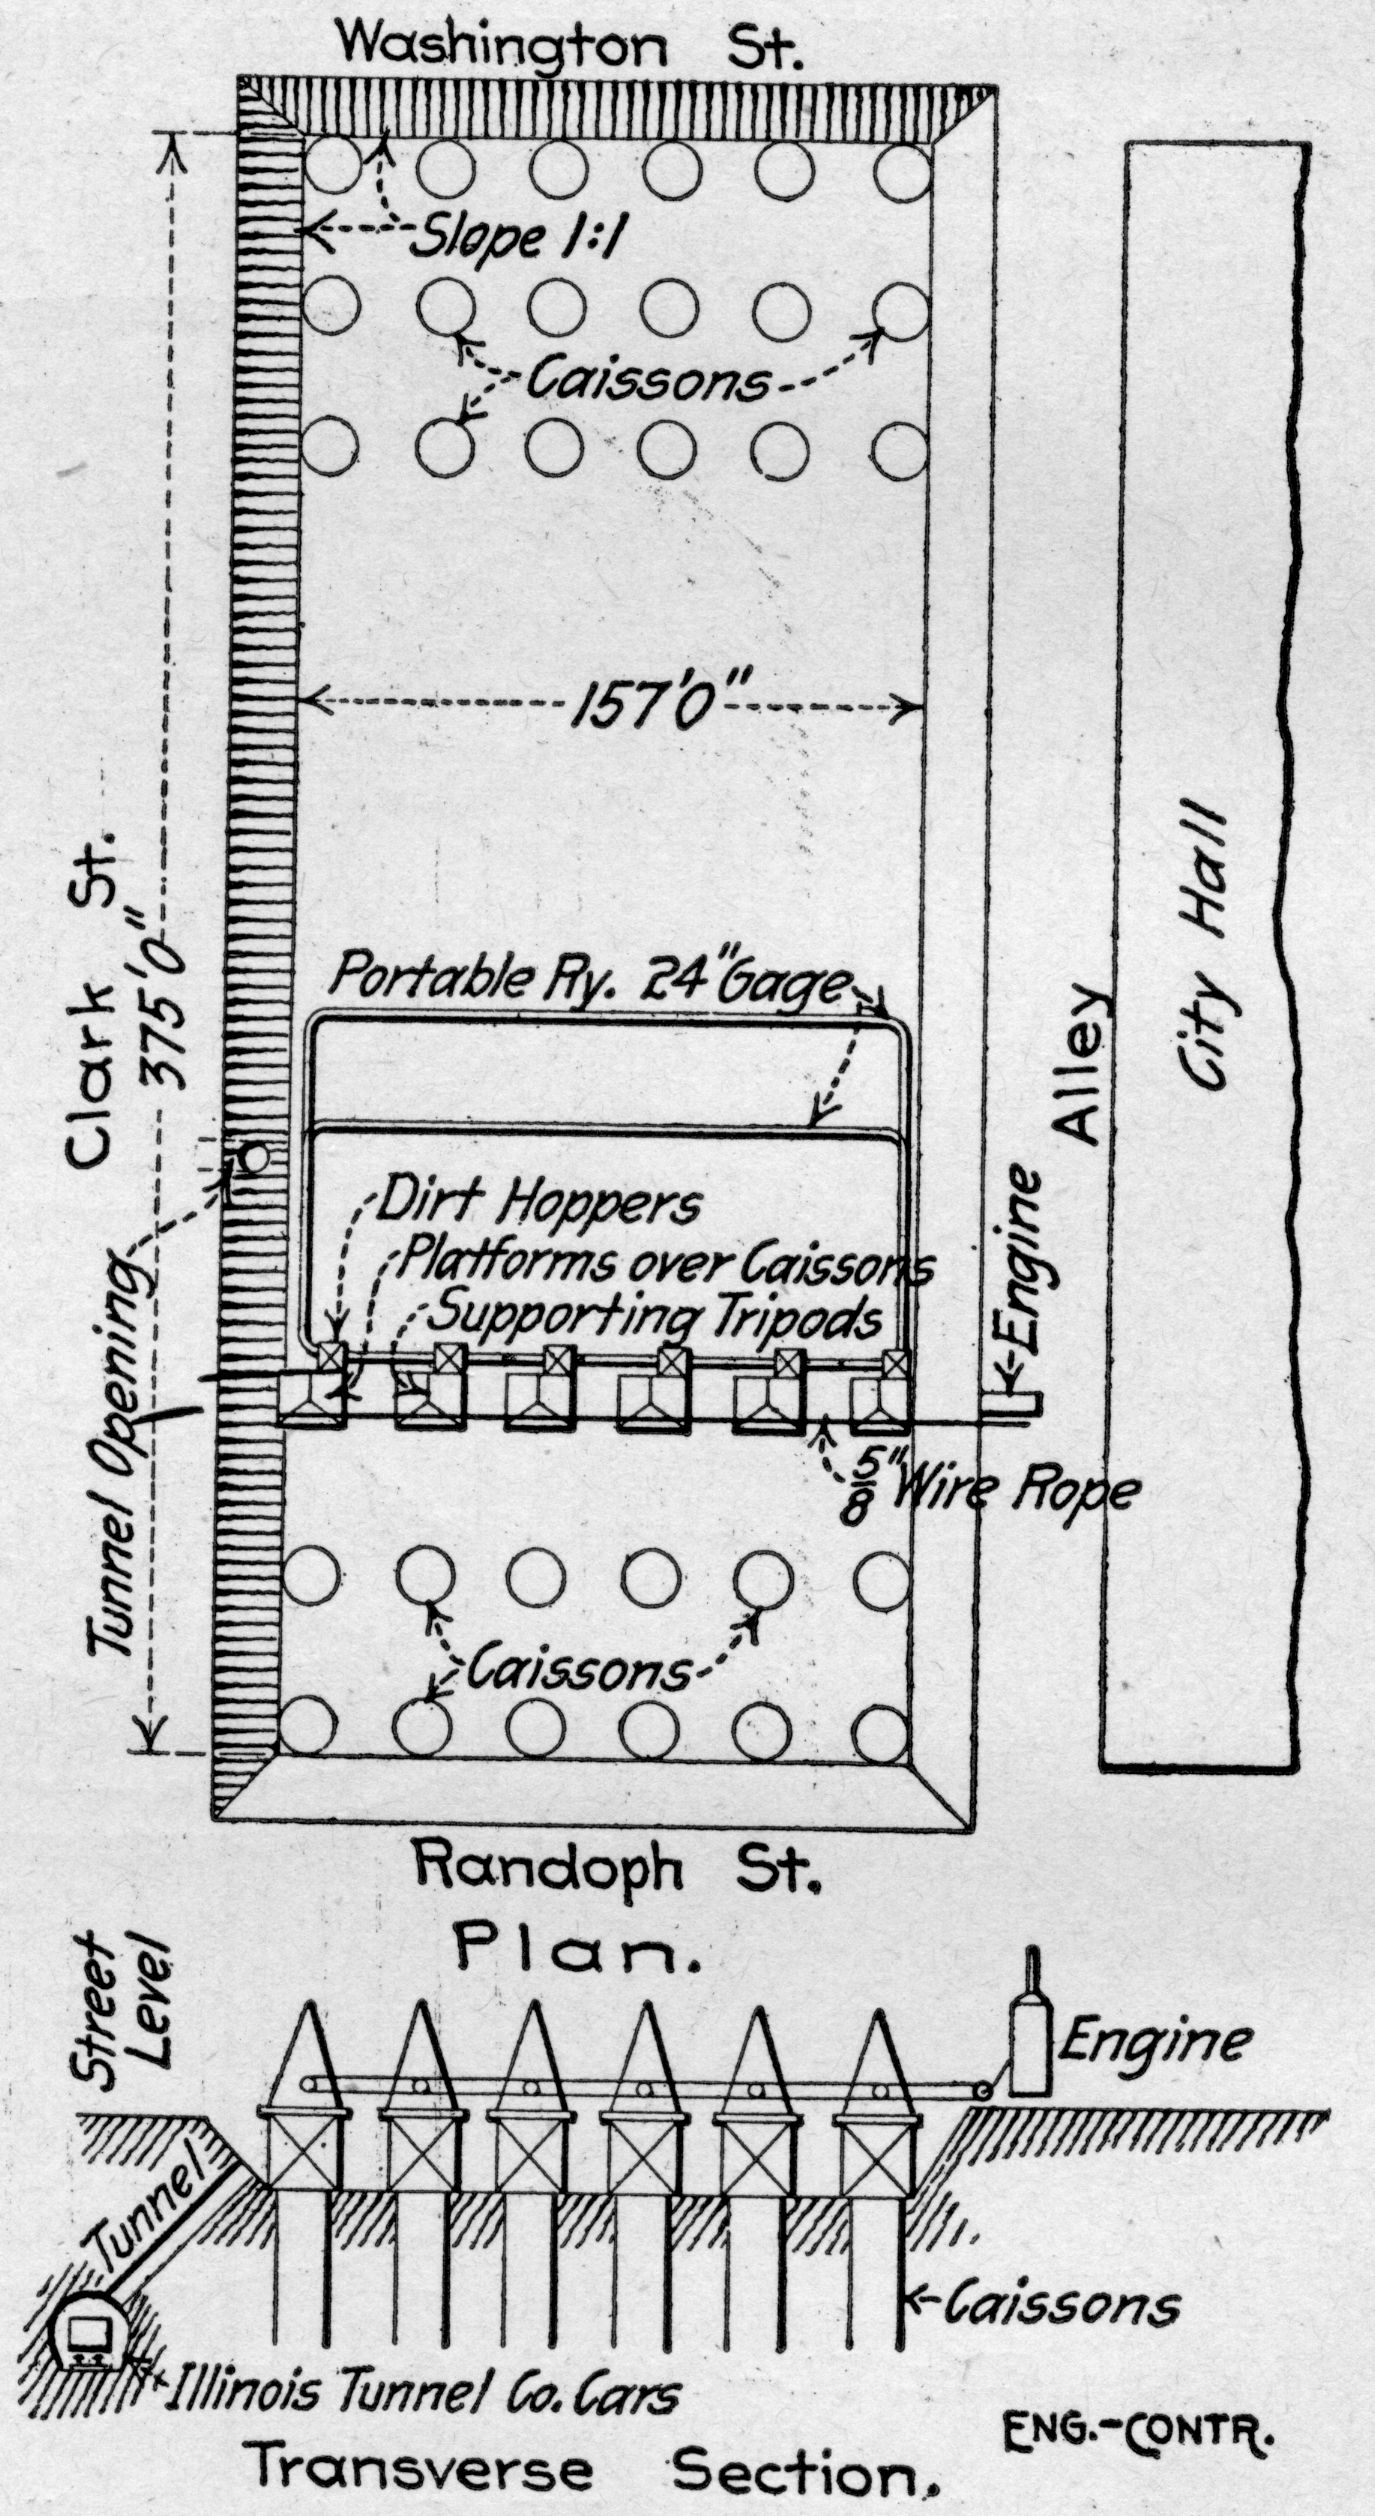 Washington St.
Slope 1:1
Caissons
157'0"
Clark St.
375'0"
Portable Ry. 24" Gage
Alley
City Hall
Tunnel Opening
Dirt Hoppers
Platforms over Caissons
Supporting Tripods
Engine
5/8" Wire Rope
Caissons
Randoph St.
Plan.
Street
Level
Engine
Tunnel
Caissons
Illinois Tunnel Co. Cars
ENG.-CONTR.
Transverse Section.